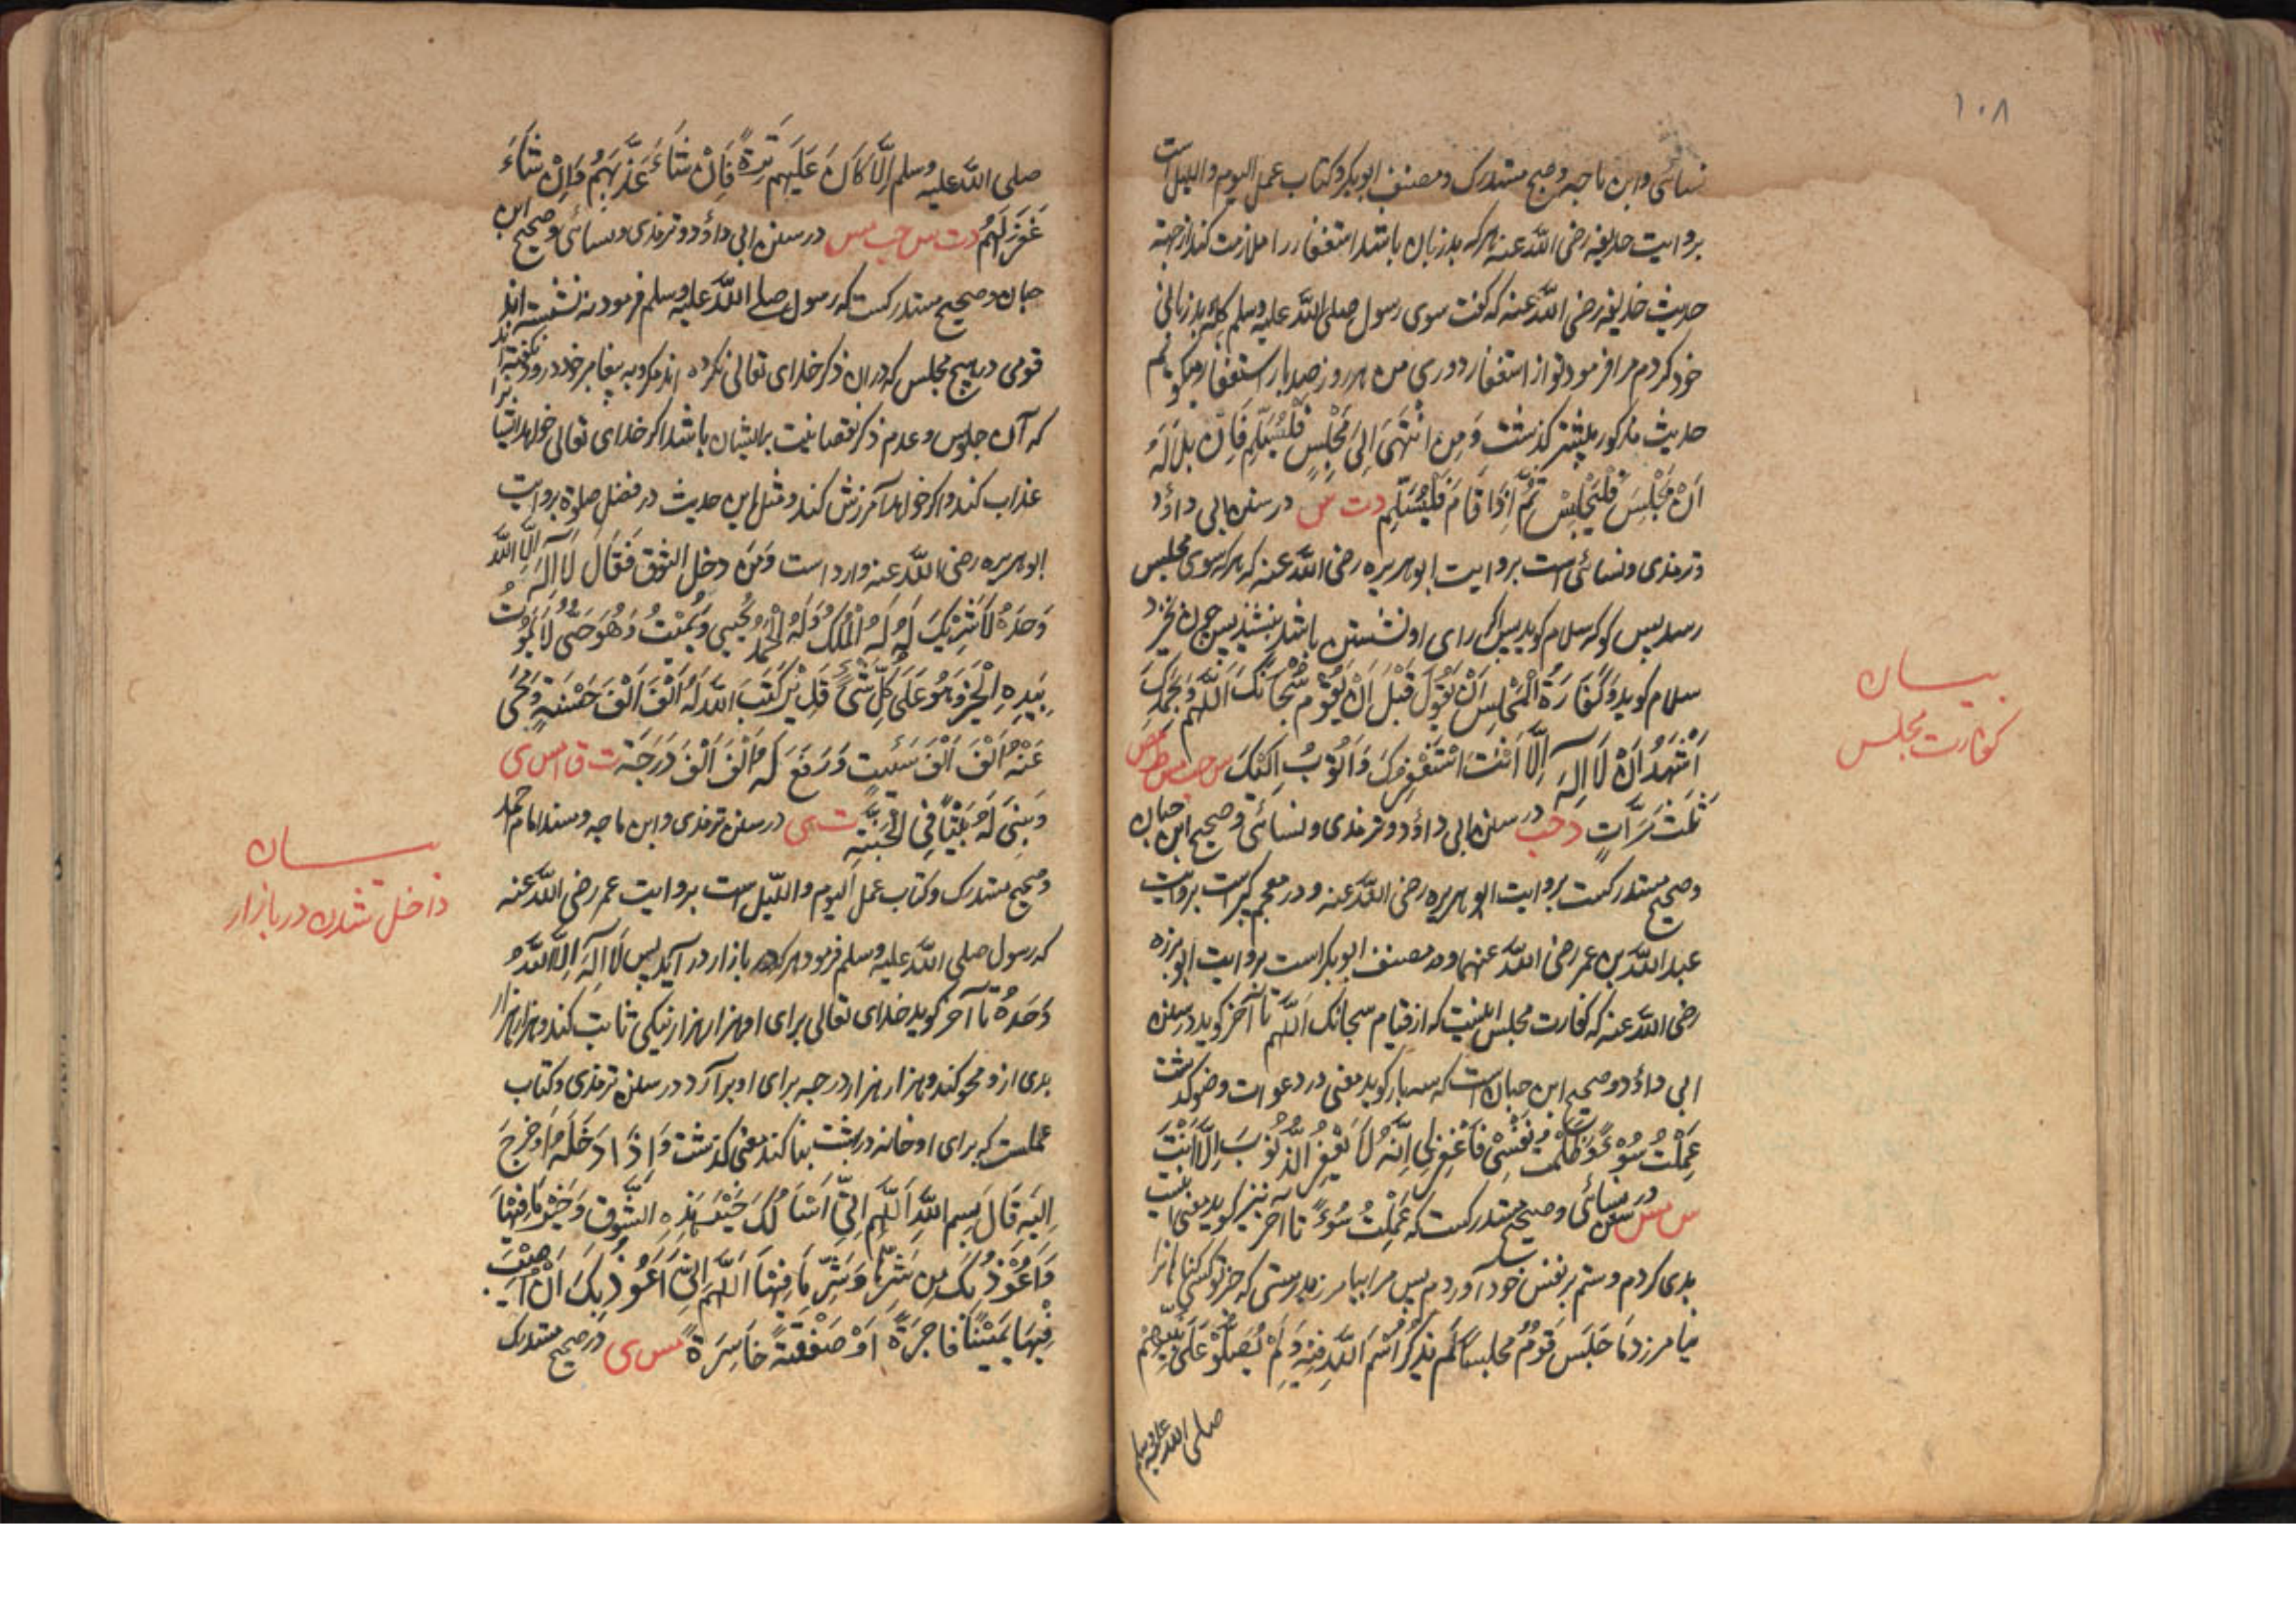 ۱۰۸
نسائی وابن ماجه وصحیح مستدرک ومصنف ابوبکر وکتاب عمل الیوم واللیل است
بروایت حذیفه رضی الله عنه هرکه بدزبان باشد استغفار را ملازمت کند از جهته
حدیث حذیفه رضی الله عنه که گفت سوی رسول صلی الله علیه وسلم گله بدزبانی
خود کردم مرا فرمود تو از استغفار دوری من هر روز صد بار استغفار میگویم
حدیث مذکور پیشتر کذشت وَمِن انْتَهَی اِلیَ مَجْلِسٍ فَلْیُسَلِّم فَاِن بَدَا لَهُ
اَنْ یَجْلِسَ فَلْیَجْلِسْ ثُمَّ اِذَا قَامَ فَلْیُسَلِّم دت س در سنن ابی داؤد
وترمذی ونسائی است بروایت ابوهریره رضی الله عنه که هرکه سوی مجلس
رسد پس کو که سلام کوید پس اکر رای او نشستن باشد بنشیند پس چون خیزد
سلام کوید وَکَفَّارَةُ الْمَجْلِسِ اَنْ یَقُوْلَ قَبْلَ اَنْ یَقُوْمَ سُبْحَانَکَ اَللّٰهُمَّ وَبِحَمْدِکَ
اَشْهَدُ اَنْ لَا اِلٰهَ اِلَّا اَنْتَ اَسْتَغْفِرُکَ وَاَتُوْبُ اِلَیْکَ س حب مس ط مص
ثَلٰثَ مَرَّاتٍ د حب در سنن ابی داؤد وترمذی ونسائی وصحیح ابن حبان
وصحیح مستدرکست بروایت ابوهریره رضی الله عنه ودر معجم کبیر است بروایت
عبد الله بن عمر رضی الله عنهما ودر مصنف ابوبکر است بروایت ابو برزه
رضی الله عنه که کفارت مجلس اینست که از قیام سبحانک اَللّٰهم تا آخر کوید در سنن
ابی داؤد وصحیح ابن حبان است که سه بار کوید معنی در دعوات وضو کذشت
عَمِلْتُ سُوْءً وَظَلَمْتُ نَفْسِیْ فَاغْفِرْلِی اِنَّهُ لَا یَغْفِرُ الذُّنُوْبَ اِلَّا اَنْتَ
س مس در سنن نسائی وصحیح مستدرکست که عَمِلْتُ سُوْءً تا آخر نیز کوید معنی اینست
بدی کردم وستم بر نفس خود آوردم پس مرا بیامرز بدرستی که جز تو کسی کناهانرا
نیامرزد مَا جَلَسَ قَوْمٌ مجلسًا لَم یَذکُرُوا اسْمَ اللّٰهِ فِیْهِ وَلَمْ یُصَلُّوْا عَلَی نَبِیِّهِمْ
صلی الله علیه وسلم
بیسان
کفارت مجلس
صلی الله علیه وسلم اِلَّا کَانَ عَلَیْهِم تِرَةً فَاِنْ شَاءَ عَذَّبَهُم وَاِنْ شَاءَ
غَفَرَ لَهُم دت س حب مس در سنن ابی داؤد وترمذی ونسائی وصحیح ابن
حبان وصحیح مستدرکست که رسول صلی الله علیه وسلم فرمود نه نشسته اند
قومی در هیچ مجلس که دران ذکر خدای تعالی نکرده اند مکر و به پیغامبر خود درود نکفته اند
که آن جلوس وعدم ذکر نقصانیت برایشان باشد اکر خدای تعالی خواهد ایشانرا
عذاب کند واکر خواهد آمرزش کند ومثل این حدیث در فضل صلوة بروایت
ابوهریره رضی الله عنه وارد است وَمَن دخل السُّوْقَ فَقَالَ لَا اِلٰهَ اِلَّا اللّٰهُ
وَحْدَهُ لَا شَرِیْکَ لَهُ لَهُ الْمُلْکُ وَلَهُ الْحَمْدُ یُحْیِی وَیُمِیْتُ وَهُوَ حَیٌّ لَا یَمُوْتُ
بِیَدِهِ الْخَیْرُ وَهُوَ عَلَی کُلِّ شَیْءٍ قَدِیْرٌ کَتَبَ اللّٰهُ لَهُ اَلْفَ اَلْفَ حَسَنَةٍ وَمَحٰی
عَنْهُ اَلْفَ اَلْفَ سَیِّئَةٍ وَرَفَعَ لَهُ اَلْفَ اَلْفَ دَرَجَةٍ ت ق ا مس ی
وَبَنٰی لَهُ بَیْتًا فِی الْجَنَّةِ ت ی در سنن ترمذی وابن ماجه ومسند امام احمد
وصحیح مستدرک وکتاب عمل الیوم واللّیل ست بروایت عمر رضی الله عنه
که رسول صلی الله علیه وسلم فرمود هرکه در بازار در آید پس لَا اِلٰهَ اِلَّا اللّٰهُ
وَحْدَهُ تا آخر کوید خدای تعالی برای او هزار هزار نیکی ثابت کند وهزار هزار
بدی ازو محو کند وهزار هزار درجه برای او برآرد در سنن ترمذی وکتاب
عملست که برای او خانه در بهشت بنا کند معنی کذشت وَاِذَا دَخَلَهُ اَوْ خَرَجَ
اِلَیْهِ قَالَ بِسمِ اللّٰهِ اَللّٰهُمَّ اِنِّی اَسْاَلُکَ خَیْرَ هٰذِهِ السُّوْقِ وَخَیْرَ مَا فِیْهَا
وَاَعُوْذُ بِکَ مِن شَرِّهَا وَشَرِّ مَا فِیْهَا اَللّٰهُمَّ اِنِّی اَعُوْذُ بِکَ اَنْ اُصِیْبَ
فِیْهَا یَمِیْنًا فَاجِرَةً اَوْ صَفْقَةً خَاسِرَةً مس ی در صحیح مستدرک
بیسان
داخل شدن در بازار